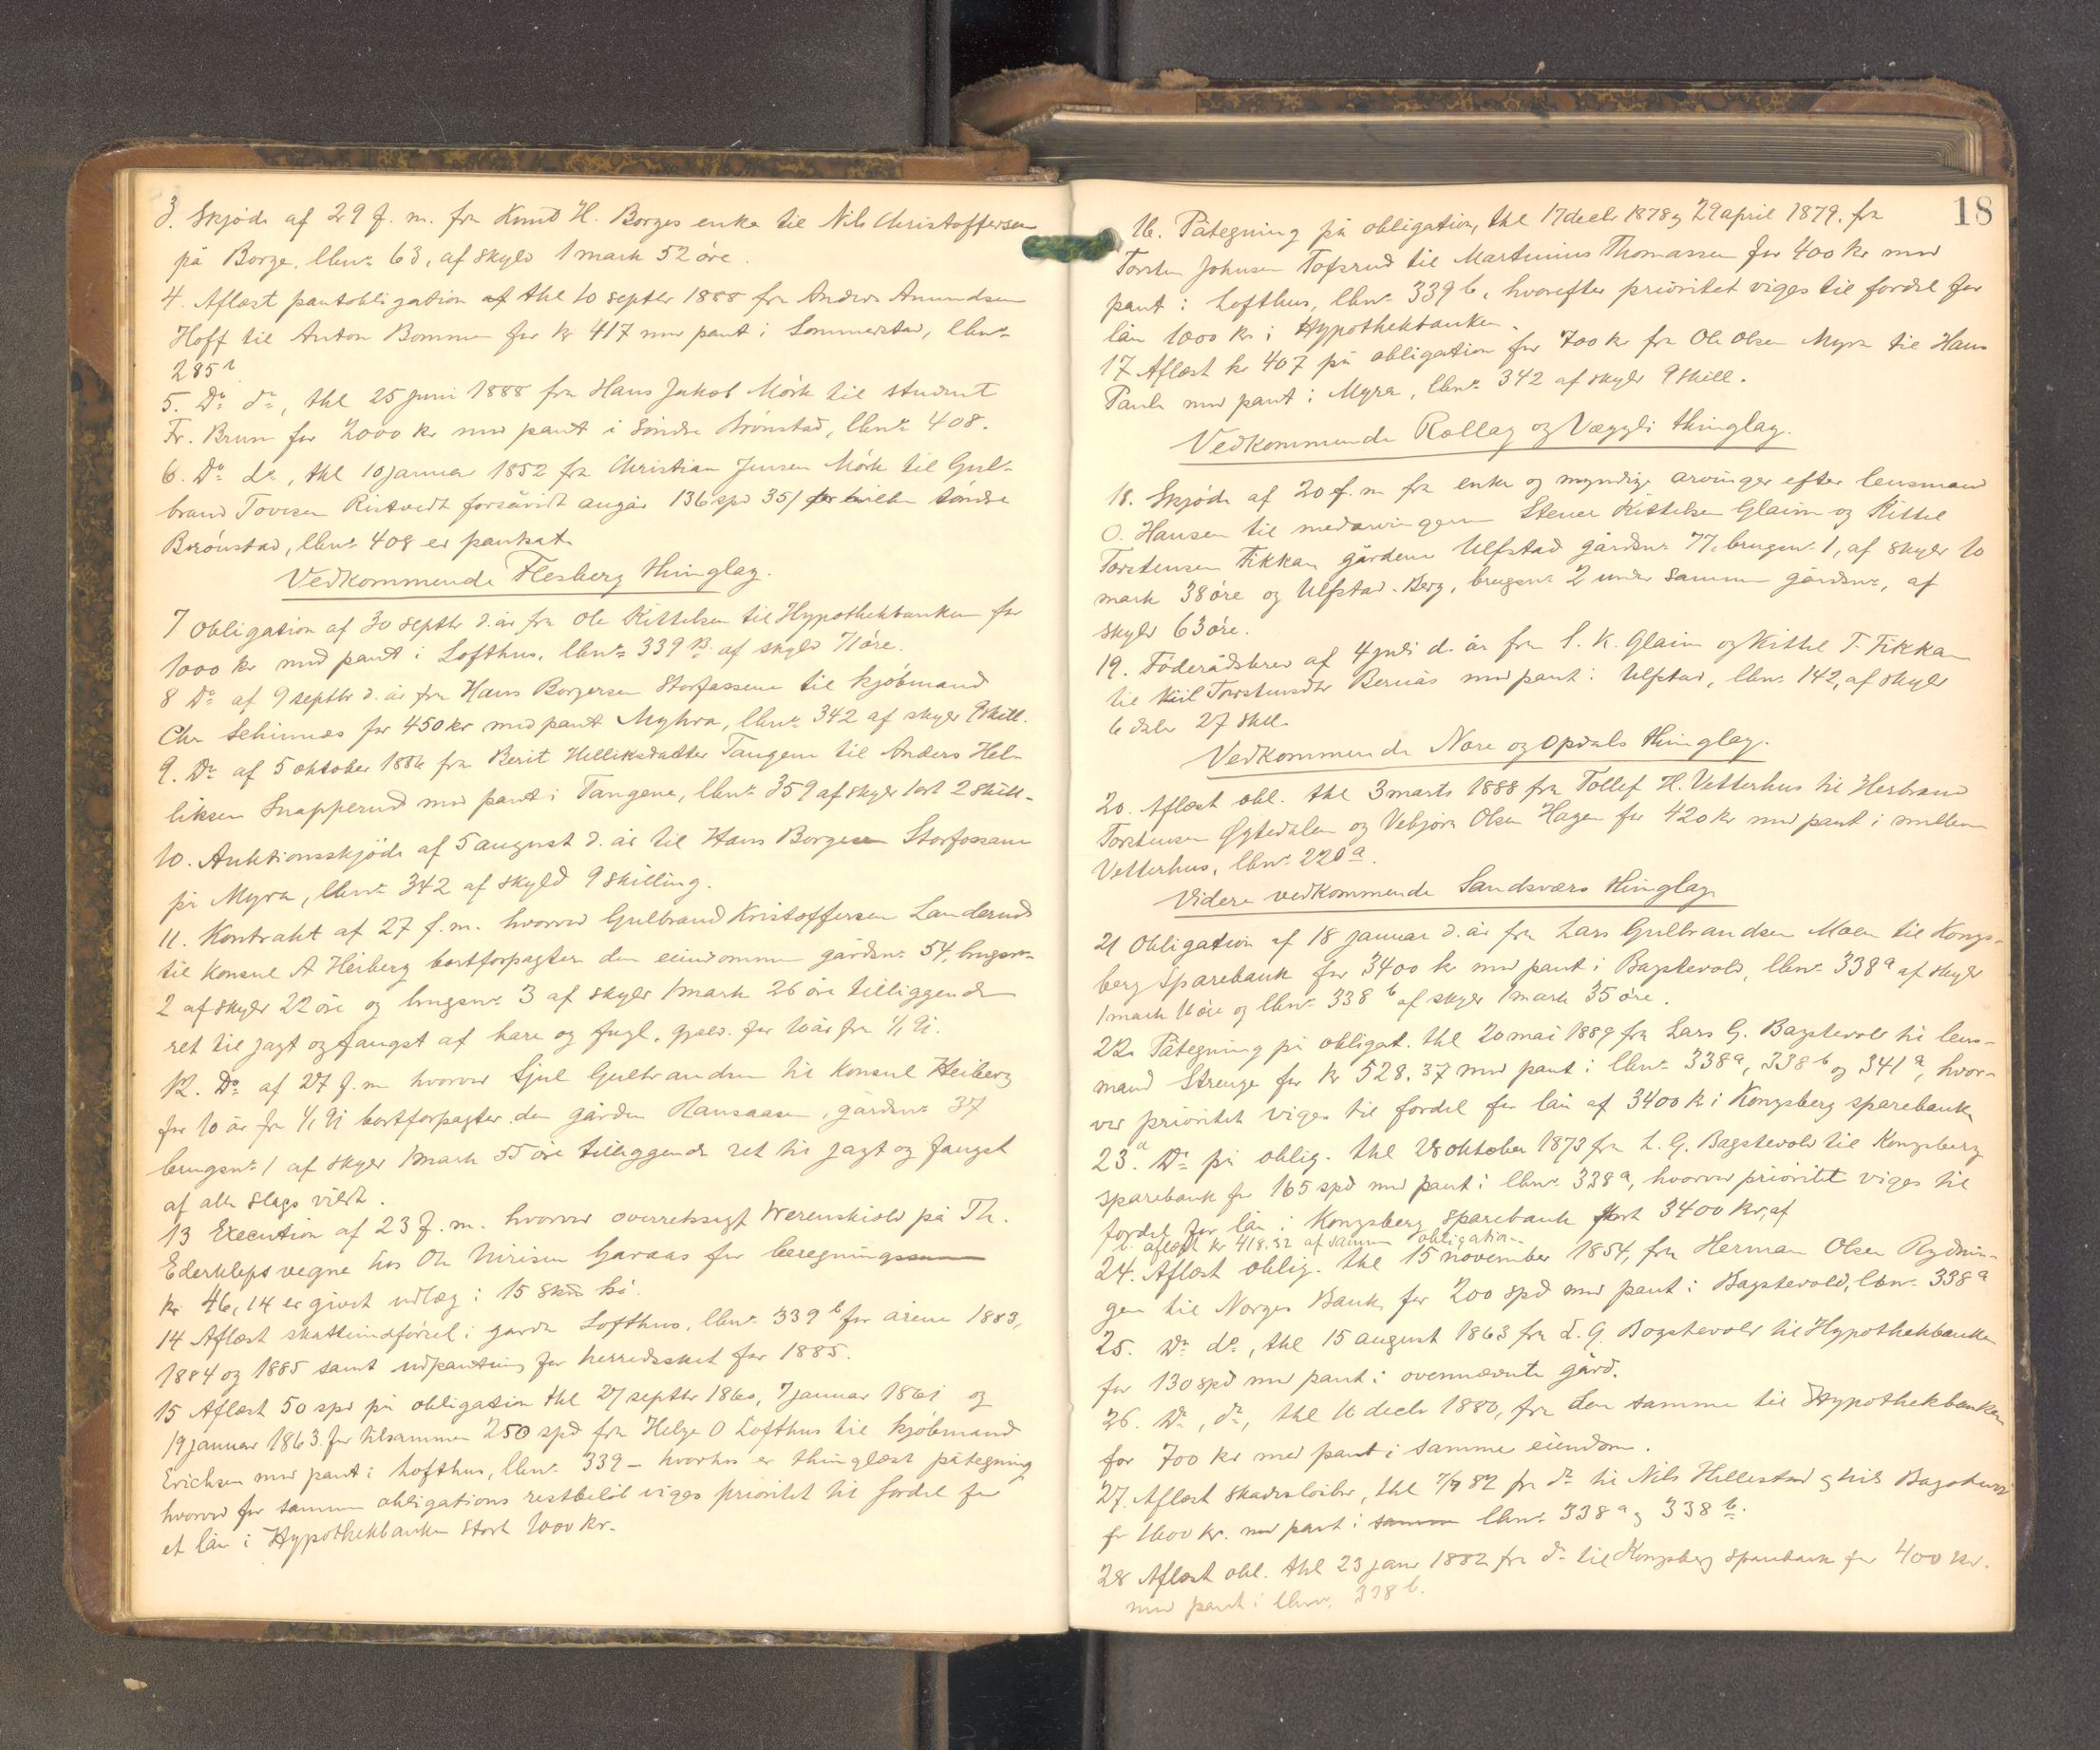 3. Skjöde af 29 f. m. fra Knud H. Borges enke til Nils Christoffersen
på Borge, lbnr. 63, af skyld 1 mark 52 öre.
4. Aflæst pantobligation af thl 10 septbr 1888 fra Anders Amundsen
Hoff til Anton Bommen for kr 417 med pant i Sommerstad, lbnr.
285 a
5. Do do, thl 25 juni 1888 fra Hans Jakob Mörk til student
Fr. Brun for 2000 kr med pant i söndre Brönstad, lbnr 408.
6. Do do, thl 10 januar 1852 fra Christian Jensen Mörk til Gul-
brand Tovesen Ristvedt forsåvidt angår 136 spd 35/ söndre
Brönstad, lbnr. 408 er pantsat.
Vedkommende Flesberg thinglag.
7 Obligation af 30 septbr d. år fra Ole Kittelsen til Hypothekbanken for
1000 kr med pant i Lofthus, lbnr. 339 B. af skyld 71 öre.
8 Do af 9 septbr d. år fra Hans Borgersen Storfossene til kjöbmand
Chr Schinnæs for 450 kr med pant Myhra, lbnr. 342 af skyld 9 skill.
9. Do af 5 oktober 1886 fra Berit Helliksdatter Tangen til Anders Hel-
liksen Snapperud med pant i Tangene, lbnr. 359 af skyld 1 ort 2 skill.
10. Auktionsskjöde af 5 august d. år til Hans Borgesen Storfossane
på Myra, lbnr. 342 af skyld 9 skilling.
11. Kontrakt af 27 f. m. hvorved Gulbrand Kristoffersen Landerud
til Konsul A Heiberg bortforpagter den eiendommen gårdsnr. 54, brugsnr.
2 af skyld 22 öre og brugsnr. 3 af skyld 1 mark 26 öre tilliggende
ret til jagt og fangst af hare og fugl, gjæld. for 10 år fra 1/1 91.
12. Do af 27 f. m hvorved Gulbrandsen til Konsul Heiberg
for 10 år fra 1/1 91 bortforpagter den gården Ransaasen, gårdsnr. 37
brugsnr. 1 af skyld 1 mark 55 öre tilliggende ret til jagt og fangst
af alle slags vildt.
13 Execution af 23 f. m. hvorved overretssagf Werenskiold på Th.
Ederkleps vegne hos Ole Nirisen Garaas for beregning
kr 46,14 er givet udlæg i 15 hö.
14 Aflæst skatteindförsel i garden Lofthus, lbnr. 339 b for årene 1883,
1884 og 1885 samt udpantning for herredsskat for 1885.
15 Aflæst 50 spd på obligation thl 27 septbr 1860, 7 januar 1861 og
19 januar 1863. for tilsammen 250 spd fra Helge O Lofthus til kjöbmand
Erichsen med pant i Lofthus, lbnr. 339 – hvorhos er thinglæst påtegning
hvorved for samme obligations restbelöb viges prioritet til fordel for
et lån i Hypothekbanken stort 1000 kr.
18
16. Påtegning på obligation, thl 17 decbr 1878 og 29 april 1879. fra
Torsten Johnsen Tofsrud til Martinius Thomassen for 400 kr med
pant i Lofthus, lbnr. 339 b, hvorefter prioritet viges til fordel for
lån 1000 kr i Hypothekbanken.
17 Aflæst kr 407 på obligation for 700 kr fra Ole Olsen Myra til Hans
Paule med pant i Myra, lbnr. 342 af skyld 9 skill.
Vedkommende Rollag og Væggli thinglag.
18. Skjöde af 20 f. m fra enke og myndige arvinger efter lensmand
O. Hansen til medarvingerne Stener Kittelsen Glaim og Kittel
Torstensen Fikkan gårdene Ulfstad gårdsnr. 77, brugsnr. 1, af skyld 10
mark 38 öre og Ulfstad-Berg, brugsnr. 2 under samme gårdsnr., af
skyld 63 öre.
19. Föderådsbrev af 4 juli d. år fra S. K. Glaim og Kittel T. Fikkan
til Torstensdtr Bernås med pant i Ulfstad, lbnr. 142, af skyld
6 daler 27 skll.
Vedkommende Nore og Opdals thinglag.
20. Aflæst obl. thl 3 marts 1888 fra Tollef H. Vetterhus til Herbrand
Torstensen Øgtedalen og Vebjörn Olsen Hagen for 420 kr med pant i mellem
Vetterhus, lbnr. 220 a.
Videre vedkommende Sandsværs thinglag
21 Obligation af 18 januar d. år fra Lars Gulbrandsen Moen til Kongs-
berg Sparebank for 3400 kr med pant i Bagstevold, lbnr. 338 a af skyld
1 mark 16 öre og lbnr. 338 b af skyld 1 mark 35 öre.
22. Påtegning på obligat. thl 20 mai 1889 fra Lars G. Bagstevold til lens-
mand Strenge for kr 528.37 med pant i lbnr. 338 a, 338 b og 341 a, hvor-
ved prioritet viges til fordel for lån af 3400 kr i Kongsberg sparebank
23. a Do på oblig. thl 28 oktober 1873 fra L. G. Bagstevold til Kongsberg
sparebank for 165 spd med pant i lbnr. 338 a, hvorved prioritet viges til
fordel for lån i Kongsberg sparebank stort 3400 kr, af
b. aflæst kr 418.32 af samme obligation.
24. Aflæst oblig. thl 15 november 1854, fra Herman Olsen Rydnin-
gen til Norges Bank for 200 spd med pant i Bagstevold, lbnr. 338 a
25. Do do, thl 15 august 1863 fra L. G. Bogstevold til Hypothekbanken
for 130 spd med pant i ovennævnte gård.
26. Do, do, thl 16 decbr 1880, fra den samme til Hypothekbanken
for 700 kr med pant i samme eiendom.
27. Aflæst skadeslösbr, thl 7/7 82 fra do til Nils Hillestad og Nils Bagstevold
for 1600 kr. med pant i samme lbnr. 338 a og 338 b.
28 Aflæst obl. thl 23 janr 1882 fra do til Kongsberg sparebank for 400 kr.
med pant i lbnr. 338 b.